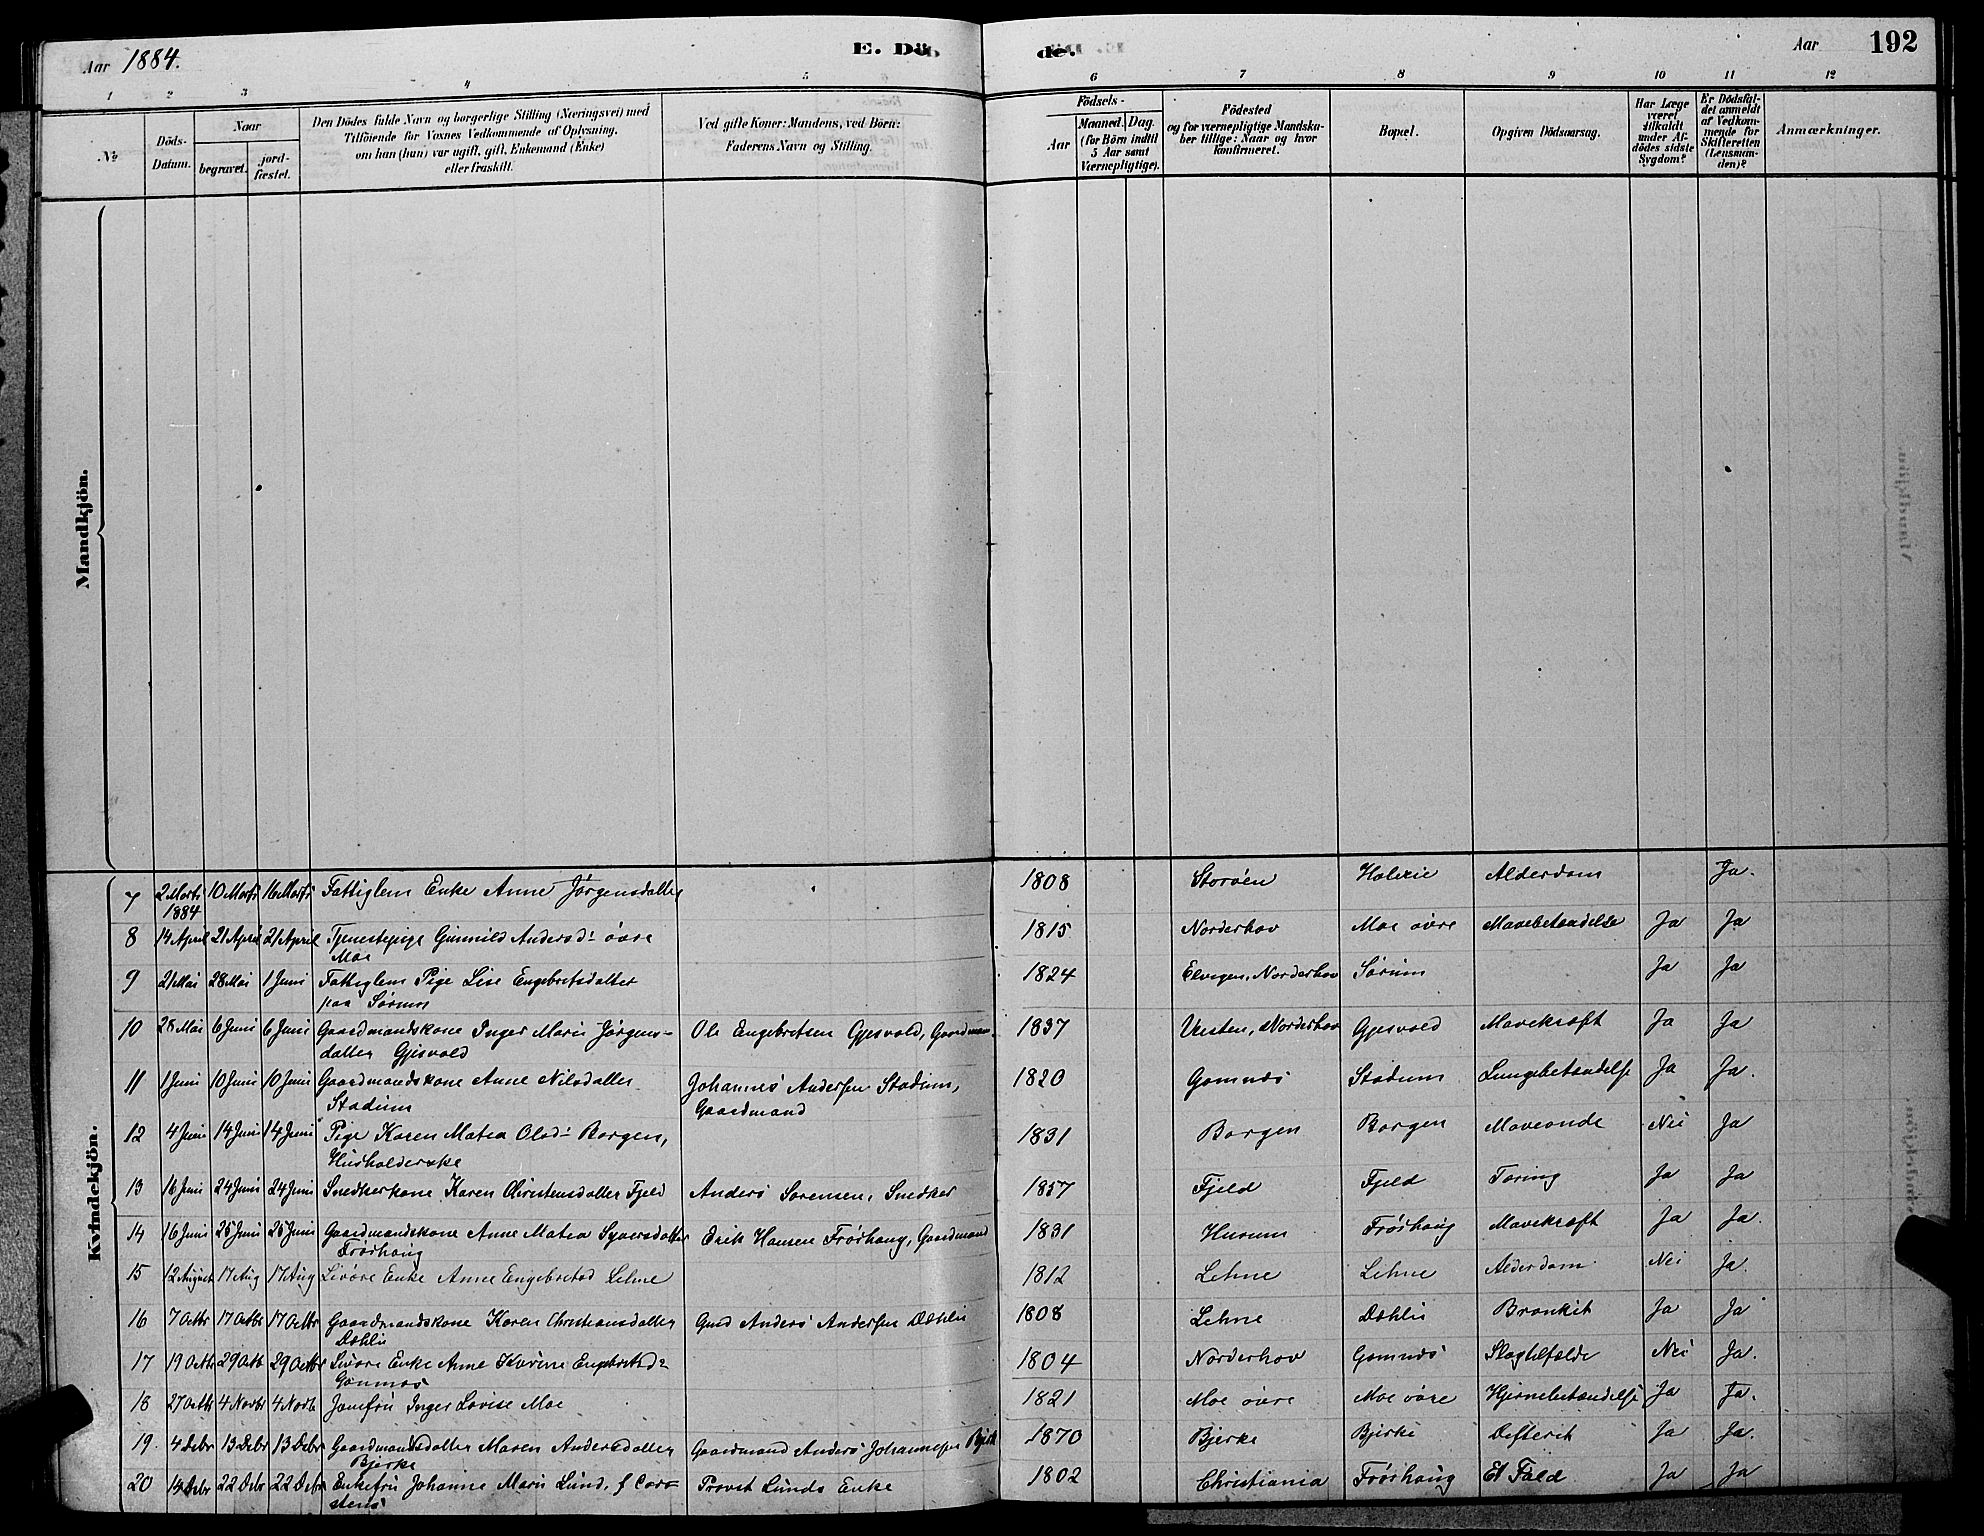 Aar 1884. E. Döde. Aar 192
1 2 3 4 5 6 7 8 9 10 11 12
№
Döds-Datum.
Naar
begravet.
jord-fæstet.
Den Dödes fulde Navn og borgerlige Stilling (Næringsvei) med
Tilföiende for Voxnes Vedkommende af Oplysning,
om han (hun) var ugift, gift, Enkemand (Enke)
eller fraskilt.
Ved gifte Koner: Mandens, ved Börn:
Faderens Navn og Stilling.
Födsels-
Aar
Maaned. Dag.
(for Börn indtil
5 Aar samt
Værnepligtige).
Födested
og for værnepligtige Mandska-
ber tillige: Naar og hvor
konfirmeret.
Bopæl.
Opgiven Dödsaarsag.
Har Læge
været
tilkaldt
under Af-
dödes sidste
Sygdom?
Er Dödsfal-
det anmeldt
af Vedkom-
mende for
Skifteretten
(Lensman-
den)?
Anmærkninger.
Mandkjön.
Kvindekjön.
7 2 Marts 10 Marts 16 Marts Fattiglem Enke Anne Jørgensdatter 1808 Storøen Alderdom Ja.
1884
8 14 April 21 April 21 April Tjenestepige Gunnild Andersd: øvre 1815 Norderhov Moe øvre Mavebetændelse Ja Ja
Moe
9 21 Mai 28 Mai 1 Juni Fattiglem Pige Lise Engebretsdatter 1824 Norderhov Sørum Ja Ja
paa Sørum
10 28 Mai 6 Juni 6 Juni Gaardmandskone Inger Marie Jørgens- Ole Engebretsen Gjesvold, Gaardman. 1837 Norderhov Gjesvold Mavekræft Ja Ja
datter Gjesvold
11 1 Juni 10 Juni 10 Juni Gaardmandskone Anne Nilsdatter Johannes Andersen Stadum, 1820 Gomnæs Stadum Lungebetændelse Ja Ja.
Stadum Gaardmand
12 4 Juni 14 Juni 14 Juni Pige Karen Matea Olsd: Borgen, 1831 Borgen Borgen Maveonde Nei Ja
Husholderske
13 16 Juni 24 Juni 24 Juni Snedkerkone Karen Fjeld Anders Sørensen, Snedker 1857 Fjeld Fjeld Tæring Ja Ja
14 16 Juni 25 Juni 25 Juni Gaardmandskone Anne Matea Syversdatter Erik Hansen Frøshaug, Gaardmand 1831 Hurum Frøshaug Mavekræft Ja Ja.
Frøshaug
15 12 August 17 Aug 17 Aug Livøre Enke Anne Engebretsd Lehne 1812 Lehne Lehne Alderdom Nei Ja.
16 7 Octbr 17 Octbr 17 Octbr Gaardmandskone Karen Christiansdatter Gmd Anders Andersen Dæhlie 1808 Lehne Dæhlie Bronkit Ja Ja
Dæhlie
17 19 Octbr 29 Octb 29 Octbr Livøre Enke Anne Karine Engebretsd: 1804 Norderhov Gomnæs Slagtilfælde Nei Ja.
Gomnæs
18 27 Octbr 4 Novbr 4 Novb Jomfru Inger Lovise Moe 1821 Moe øvre Moe øvre Hjernebetændelse Ja Ja.
19. 4 Debr 13 Debr 13 Debr Gaardmandsdatter Maren Andersdatter Gaardmand Anders Johannesen Bjerke 1870 Bjerke Bjerke Defterit Ja Ja.
Bjerke
20 14 Debr 22 Debr 22 Debr Enkefru Johanne Marie Lund, f Car- Provst Lunds Enke 1802 Christiania Frøshaug Et Fald Ja Ja
stens